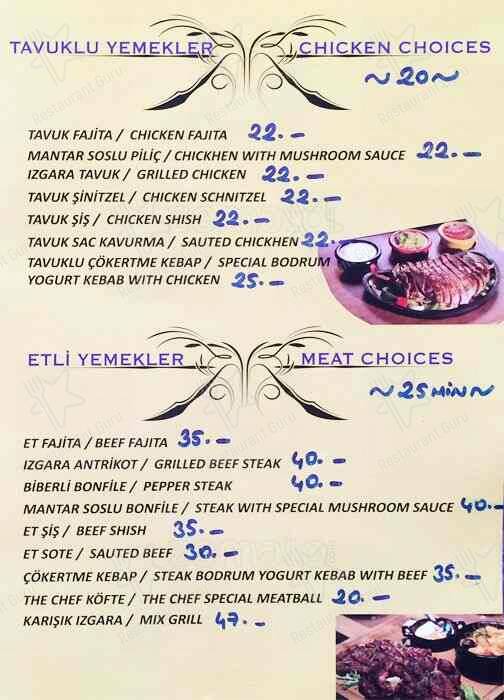 TAVUKLU YEMEKLER CHICKEN CHOICES
~20~
TAVUK FAJİTA / CHICKEN FAJITA 22.-
MANTAR SOSLU PİLİÇ / CHICKHEN WITH MUSHROOM SAUCE 22.-
IZGARA TAVUK / GRILLED CHICKEN 22.-
TAVUK ŞİNİTZEL / CHICKEN SCHNITZEL 22.-
TAVUK ŞİŞ / CHICKEN SHISH 22.-
TAVUK SAC KAVURMA / SAUTED CHICKHEN 22.-
TAVUKLU ÇÖKERTME KEBAP / SPECIAL BODRUM
YOGURT KEBAB WITH CHICKEN 25.-
ETLİ YEMEKLER MEAT CHOICES
~25 MİN~
ET FAJİTA / BEEF FAJITA 35.-
IZGARA ANTRİKOT / GRILLED BEEF STEAK 40.-
BİBERLİ BONFİLE / PEPPER STEAK 40.-
MANTAR SOSLU BONFİLE / STEAK WITH SPECIAL MUSHROOM SAUCE 40.-
ET ŞİŞ / BEEF SHISH 35.-
ET SOTE / SAUTED BEEF 30.-
ÇÖKERTME KEBAP / STEAK BODRUM YOGURT KEBAB WITH BEEF 35.-
THE CHEF KÖFTE / THE CHEF SPECIAL MEATBALL 20.-
KARIŞIK IZGARA / MIX GRILL 47.-
Restaurant Guru